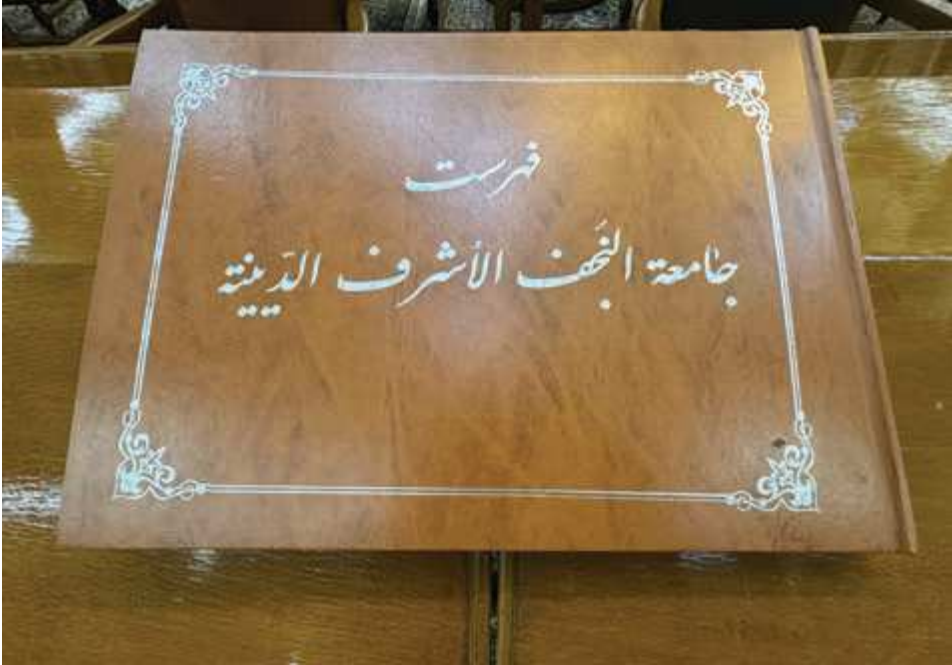 فهرست
جامعة النَجف الأشرف الدّينيّة